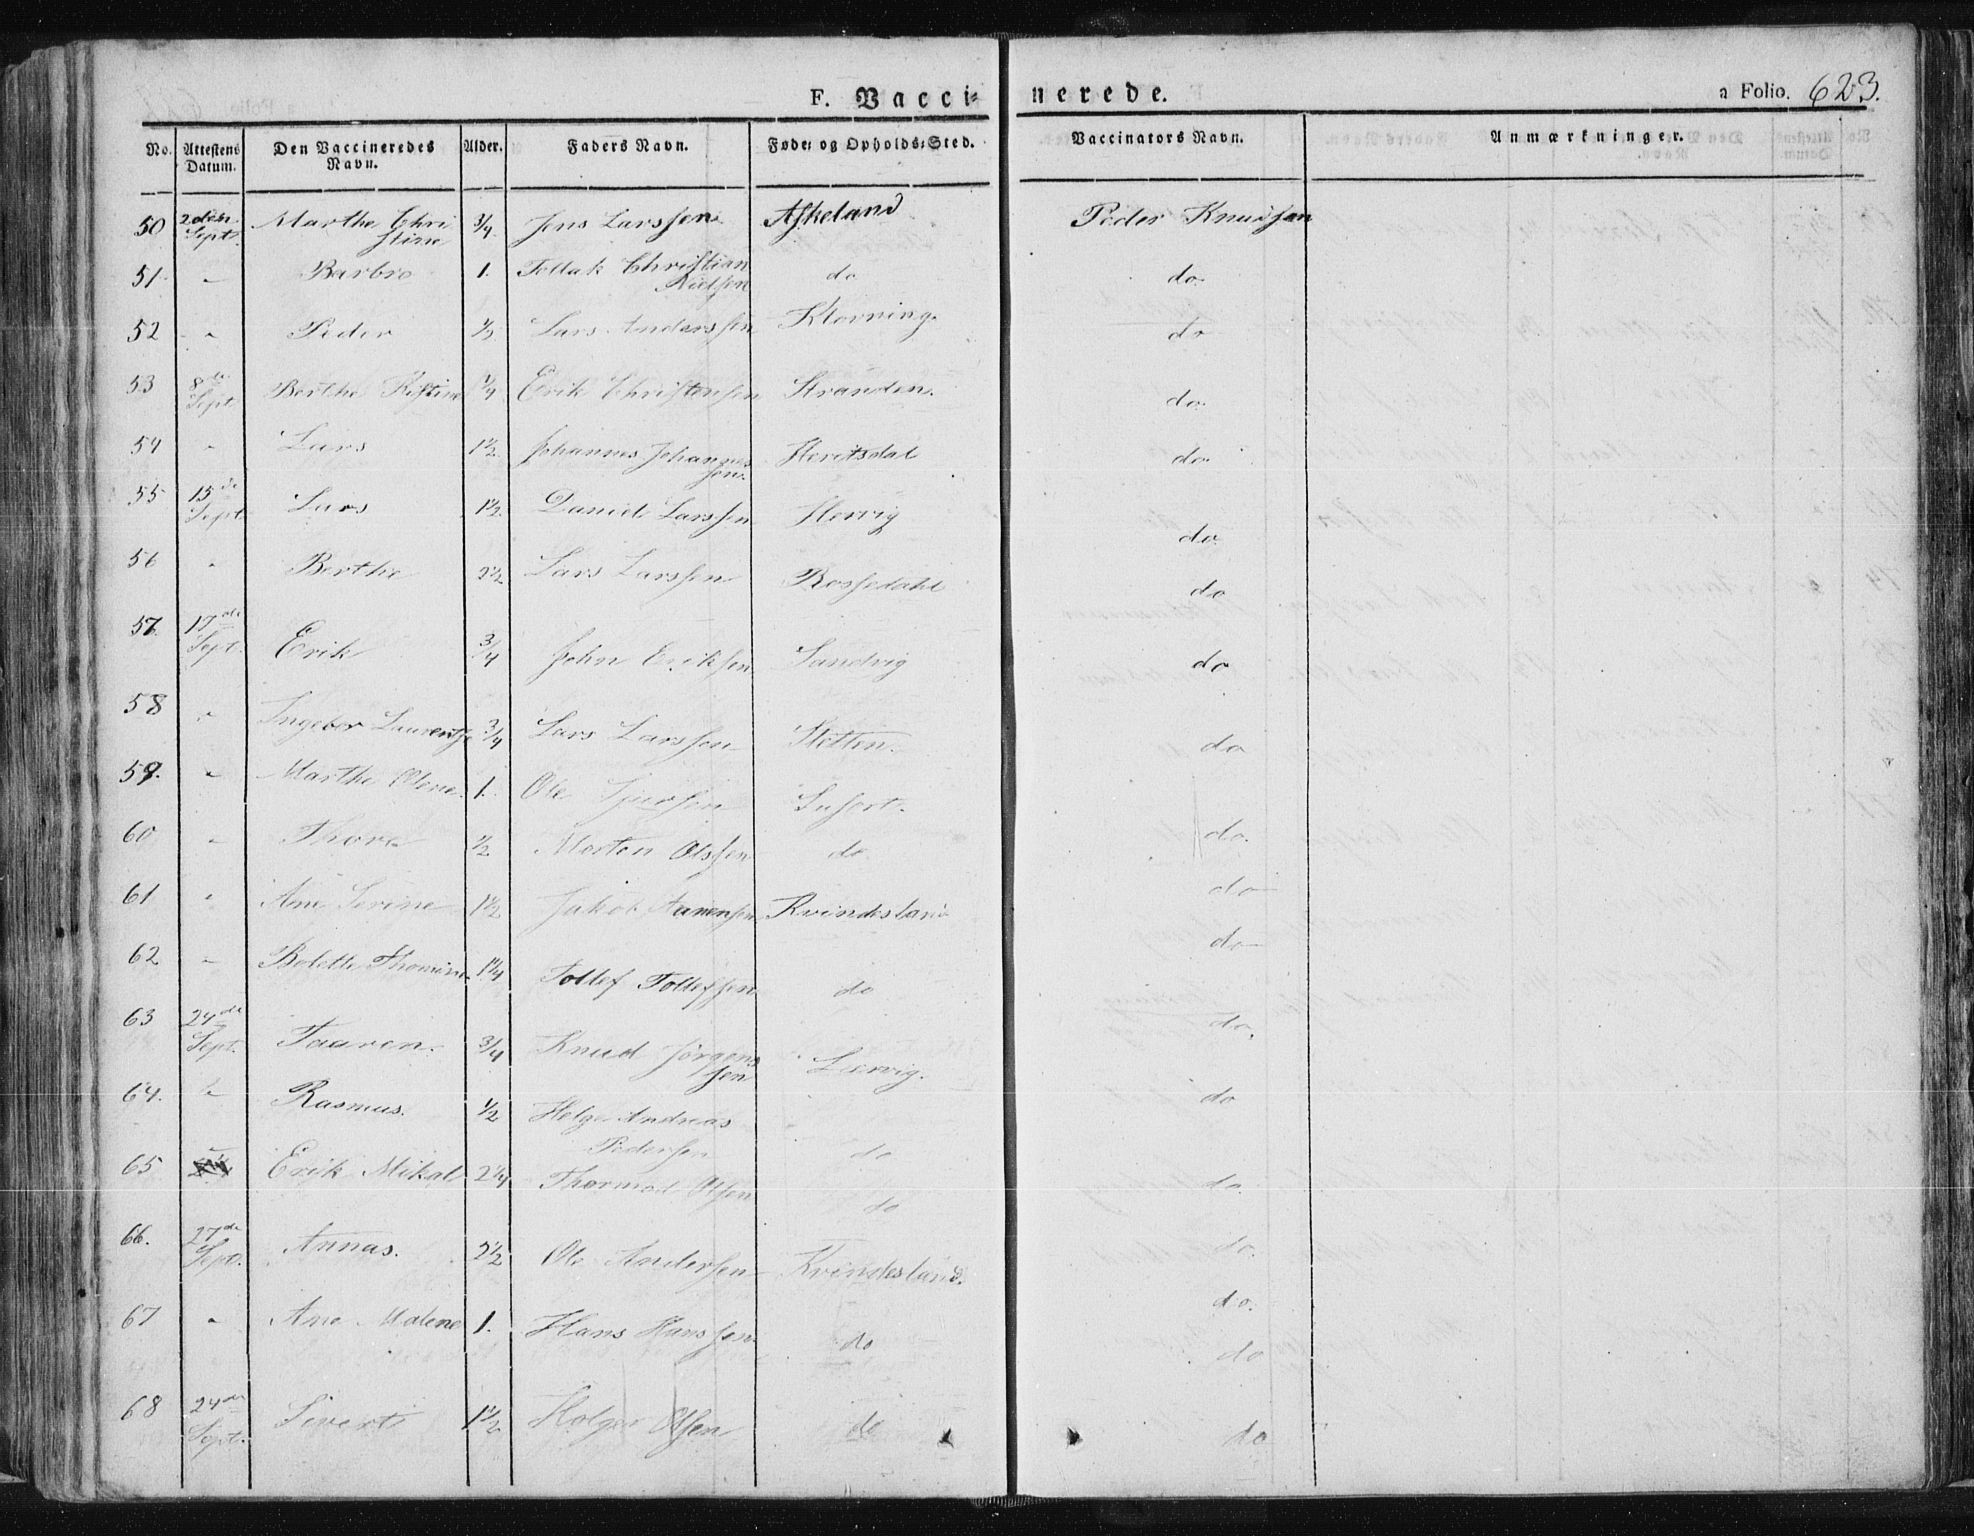 F. Vacci=
nerede.
a Folio. 623.
No. Attestens Datum. Den Vaccineredes Navn. Alder. Faders Navn. Føde= og Opholds=Sted. Vaccinators Navn. Anmærkninger.
50 2den Sept. Marthe Christine 3/4 Jens Larssen Askeland Peder Knudsen
51 " Barbro 1. Tollak Christian do do
52 " Peder Lars Anderssen Klovning do
53 8de Sept Berthe Kistine Erik Christensen Stranden do
54 " Lars 1 1/2 Johannes Johannessen do
55 15de Sept. Lars 1 1/2 Daniel Larssen Hervig do
56 " Berthe 2 1/2 Lars Larssen Rossedahl do
57. 17de Sept. Erik 3/4 John Eriksen Sandvig do
58 " Ingebor 3/4 Lars Larssen Sletten do
59. " Marthe Olene 1. Ole do.
60 " Thore 1/2 Morten Olssen do do
61 " Ane Serine 1 1/2 Jakob Kvindesland do
62 " Bolette Thomine 1 1/4 Tollef Tollefsen do do.
63 24de Sept. Taaren. 3/4 Knud Jørgenssen Lervig. do
64. " Rasmus. 1/2 Helge Andreas Pedersen do do.
65 " Erik Mikal 2 1/4 Thormod Olsen do do.
66. 27de Sept. Annas. 2 1/2 Ole Andersen Kvindesland. do.
67 " Ane Malene 1. Hans Hanssen do do
68 24de Sept. Sivert 1 1/2 Holger Olsen do do